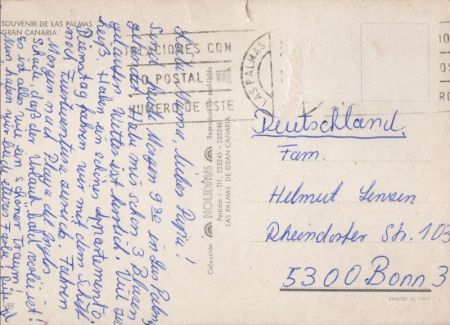 SOUVENIR DE LAS PALMAS
GRAN CANARIA
Liebe Mama, lieber Papa!
Sind heute Morgen 9 30 in Las Palmas
gelandet. Habe mir schon 3 Blasen
gelaufen. Wetter ist herrlich. Viel zu
heiß. Haben ein schönes Appartement.
Dienstag fahren wir mit dem Schiff
nach Fuerteventura zurück. Fahren
Morgen nach Playa del Ingles.
Schade, daß der Urlaub bald vorbei ist!
Es ist alles wie ein schöner Traum!
Nun haben wir bald schon
Colección
NOLIPRINS
Reproducción prohibida
Pedidos: Tlf. 255245 - 255246
LAS PALMAS DE GRAN CANARIA
CIONES CON
POSTAL
NUMERO DE ESTE
LAS PALMAS
Deutschland
Fam.
Helmut Lenzen
Rheindorfer Str. 103
5300 Bonn 3
PRINTED IN ITALY